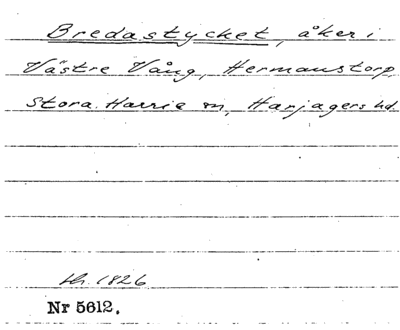 Bredastycket, åker i
Västre Vång, Hermanstorp
Stora Harrie sn, Harjagers hd.
1826
Nr 5612.